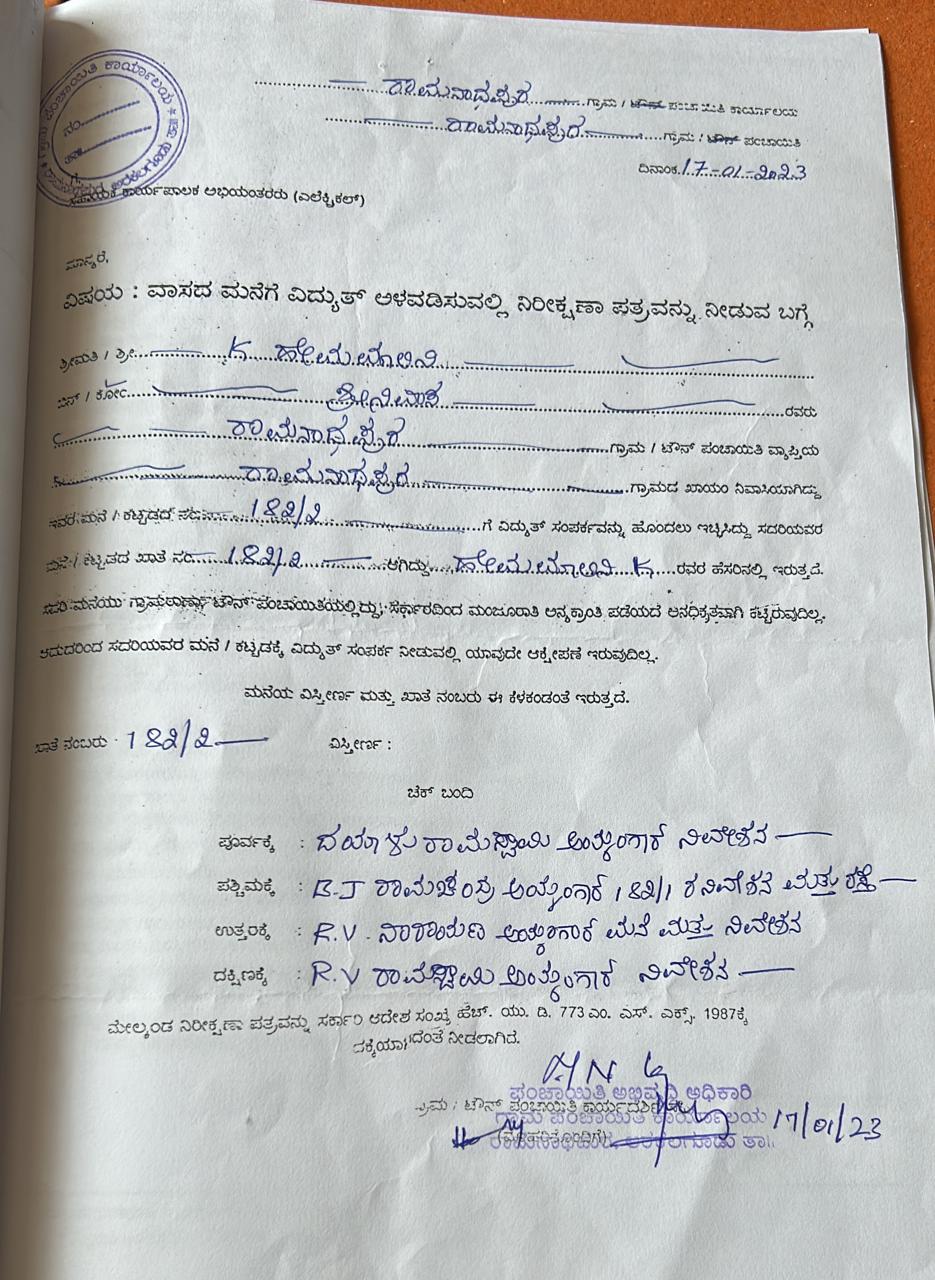 ರಾಮನಾಥಪುರ ಗ್ರಾಮ / ಟೌನ್ ಪಂಚಾಯಿತಿ ಕಾರ್ಯಾಲಯ
ರಾಮನಾಥಪುರ ಗ್ರಾಮ / ಟೌನ್ ಪಂಚಾಯಿತಿ
ದಿನಾಂಕ 17-01-೨೦೨3
ಗೆ,
ಸಹಾಯಕ ಕಾರ್ಯಪಾಲಕ ಅಭಿಯಂತರರು (ಎಲೆಕ್ಟ್ರಿಕಲ್)
ಮಾನ್ಯರೆ,
ವಿಷಯ : ವಾಸದ ಮನೆಗೆ ವಿದ್ಯುತ್ ಅಳವಡಿಸುವಲ್ಲಿ ನಿರೀಕ್ಷಣಾ ಪತ್ರವನ್ನು ನೀಡುವ ಬಗ್ಗೆ
ಶ್ರೀಮತಿ / ಶ್ರೀ. K ಹೇಮಮಾಲಿನಿ
ಬಿನ್ / ಕೋಂ. ಶ್ರೀನಿವಾಸ ರವರು
ರಾಮನಾಥಪುರ ಗ್ರಾಮ / ಟೌನ್ ಪಂಚಾಯಿತಿ ವ್ಯಾಪ್ತಿಯ
ರಾಮನಾಥಪುರ ಗ್ರಾಮದ ಖಾಯಂ ನಿವಾಸಿಯಾಗಿದ್ದು
ಇವರ ಮನೆ / ಕಟ್ಟಡದ ನಂ. 1೮೨/೨ ಗೆ ವಿದ್ಯುತ್ ಸಂಪರ್ಕವನ್ನು ಹೊಂದಲು ಇಚ್ಛಿಸಿದ್ದು ಸದರಿಯವರ
ಮನೆ / ಕಟ್ಟಡದ ಖಾತೆ ನಂ. 1೮೨/೨ ಆಗಿದ್ದು, ಹೇಮಮಾಲಿನಿ K ರವರ ಹೆಸರಿನಲ್ಲಿ ಇರುತ್ತದೆ.
ಸದರಿ ಮನೆಯು ಗ್ರಾಮಠಾಣಾ/ ಟೌನ್ ಪಂಚಾಯಿತಿಯಲ್ಲಿದ್ದು, ಸರ್ಕಾರದಿಂದ ಮಂಜೂರಾತಿ ಅನ್ಯಕ್ರಾಂತಿ ಪಡೆಯದೆ ಅನಧಿಕೃತವಾಗಿ ಕಟ್ಟಿರುವುದಿಲ್ಲ.
ಆದುದರಿಂದ ಸದರಿಯವರ ಮನೆ / ಕಟ್ಟಡಕ್ಕೆ ವಿದ್ಯುತ್ ಸಂಪರ್ಕ ನೀಡುವಲ್ಲಿ ಯಾವುದೇ ಆಕ್ಷೇಪಣೆ ಇರುವುದಿಲ್ಲ.
ಮನೆಯ ವಿಸ್ತೀರ್ಣ ಮತ್ತು ಖಾತೆ ನಂಬರು ಈ ಕೆಳಕಂಡಂತೆ ಇರುತ್ತದೆ.
ಖಾತೆ ನಂಬರು : 1೮೨/೨ ವಿಸ್ತೀರ್ಣ :
ಚೆಕ್ ಬಂದಿ
ಪೂರ್ವಕ್ಕೆ : ದಯಾಳು ರಾಮಸ್ವಾಮಿ ಅಯ್ಯಂಗಾರ್ ನಿವೇಶನ
ಪಶ್ಚಿಮಕ್ಕೆ : B.J ರಾಮಚಂದ್ರ ಅಯ್ಯಂಗಾರ್ 1೮೨/1 ರ ನಿವೇಶನ ಮತ್ತು ರಸ್ತೆ
ಉತ್ತರಕ್ಕೆ : R.V. ನಾರಾಯಣ ಅಯ್ಯಂಗಾರ್ ಮನೆ ಮತ್ತು ನಿವೇಶನ
ದಕ್ಷಿಣಕ್ಕೆ : R.V ರಾಮಸ್ವಾಮಿ ಅಯ್ಯಂಗಾರ್ ನಿವೇಶನ
ಮೇಲ್ಕಂಡ ನಿರೀಕ್ಷಣಾ ಪತ್ರವನ್ನು ಸರ್ಕಾರಿ ಆದೇಶ ಸಂಖ್ಯೆ ಹೆಚ್. ಯು. ಡಿ. 773 ಎಂ. ಎಸ್. ಎಕ್ಸ್. 1987ಕ್ಕೆ
ನೀಡಲಾಗಿದೆ.
ಪಂಚಾಯಿತಿ ಅಭಿವೃದ್ಧಿ ಅಧಿಕಾರಿ
ಗ್ರಾಮ / ಟೌನ್ ಪಂಚಾಯಿತಿ ಕಾರ್ಯದರ್ಶಿ
ಗ್ರಾಮ ಪಂಚಾಯಿತಿ ಕಾರ್ಯಾಲಯ 17/01/23
(ಮೊಹರಿನೊಂದಿಗೆ)
ರಾಮನಾಥಪುರ, ಅರಕಲಗೂಡು ತಾ.